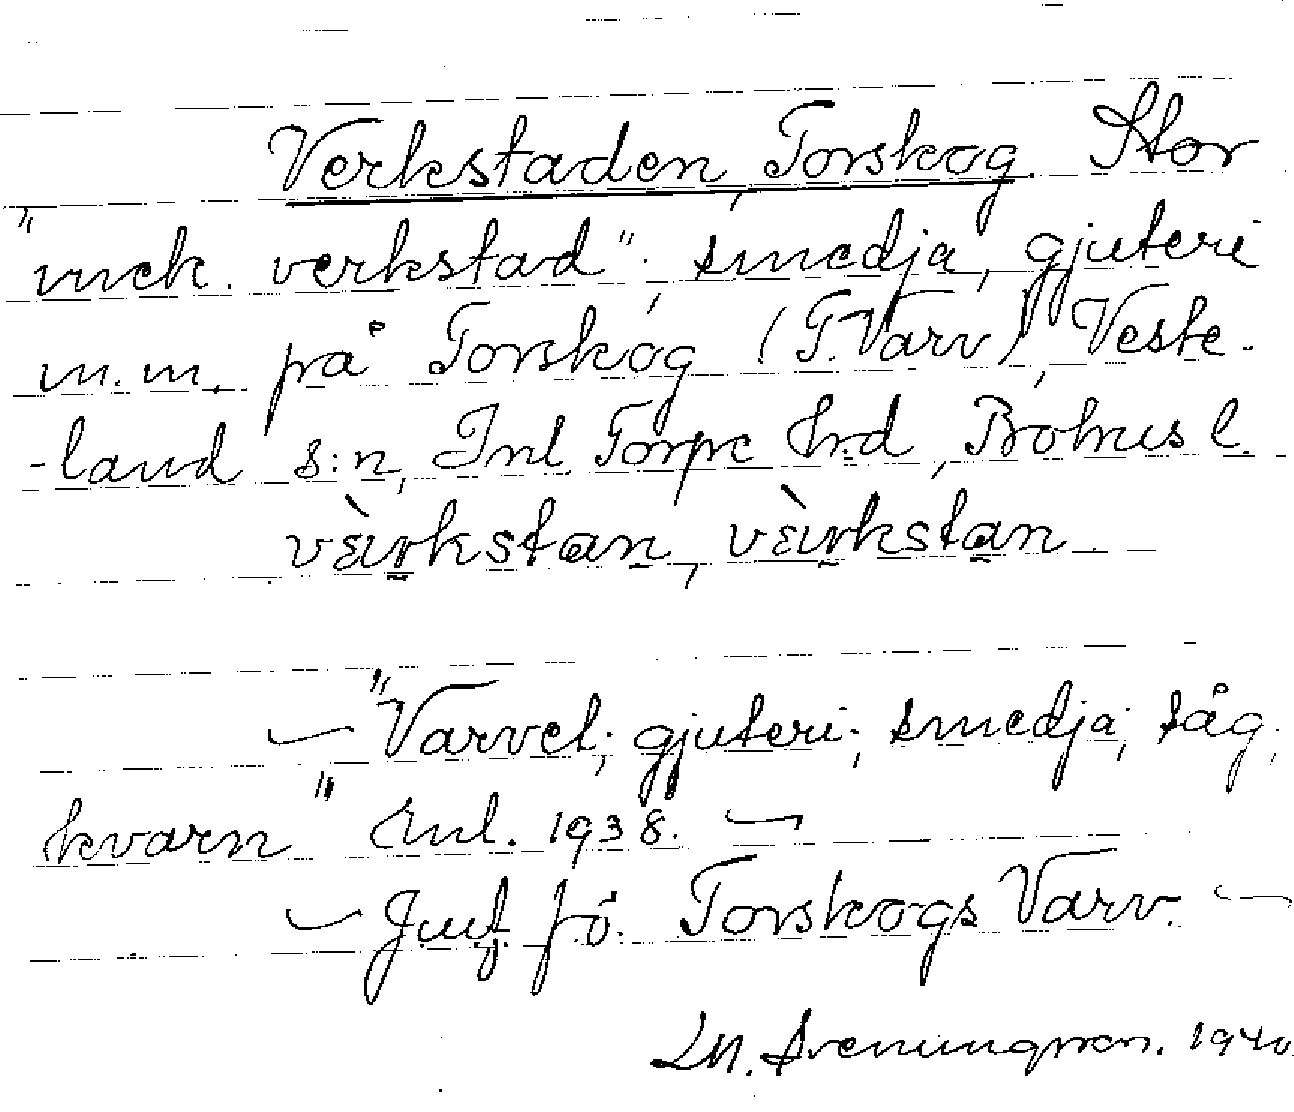 Verkstaden, Torskog. Stor
"mek. verkstad"; smedja, gjuteri
m.m. på Torskog (T. Varv), Veste-
-land s:n, Inl. Torpe hrd, Bohusl.
vὲrkstan, vὲrkstan
– "Varvet; gjuteri; smedja; såg;
kvarn" Anl. 1938. –
– Jmf fö. Torskogs Varv. –
1940